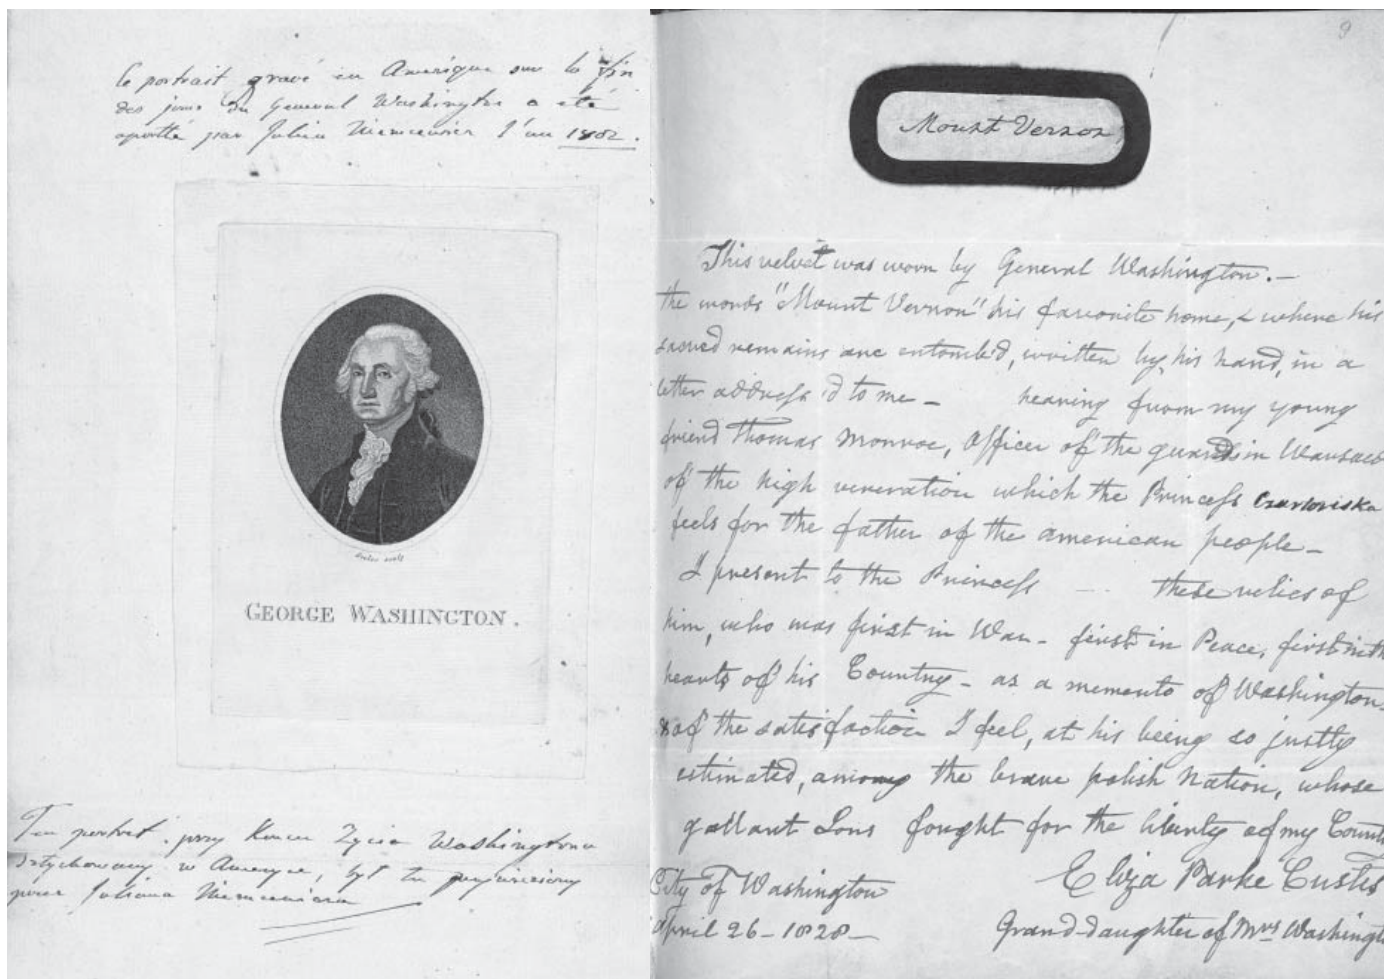 le portrait gravé en Amérique sur la fin
des jours du General Washington a été
aporté par Julien Niemcewicz l'an 1802.
GEORGE WASHINGTON.
Ten portret przy Koncu Zycia Washingtona
sztychowany w Ameryce, był tu przywieziony
przez Juliana Niemcewicza
9
Mount Vernon
This velvet was worn by General Washington. —
the words "Mount Vernon" his favorite home, & where his
sacred remains are entomb'd, written by his hand, in a
letter address'd to me — hearing from my young
friend Thomas Monroe, Officer of the guard in Warsaw
of the high veneration which the Princess Czartoriska
feels for the father of the american people —
I present to the Princess — these relics of
him, who was first in War — first in Peace, first in th
hearts of his Country — as a memento of Washington —
& of the satisfaction I feel, at his being so justly
estimated, among the brave polish Nation, whose
gallant Sons fought for the liberty of my Count
Eliza Parke Custis
City of Washington
April 26 — 1828 —
Grand-daughter of Mrs Washingt